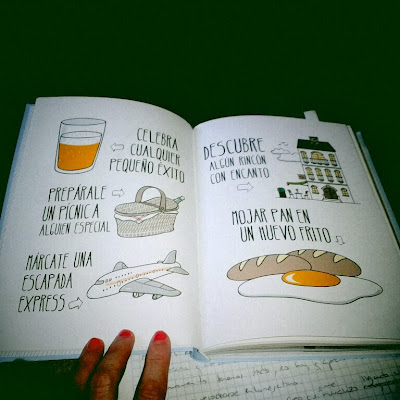 CELEBRA
CUALQUIER
PEQUEÑO ÉXITO
PREPÁRALE
UN PICNIC A
ALGUIEN ESPECIAL
MÁRCATE UNA
ESCAPADA
EXPRESS
DESCUBRE
ALGÚN RINCÓN
CON ENCANTO
MOJAR PAN EN
UN HUEVO FRITO